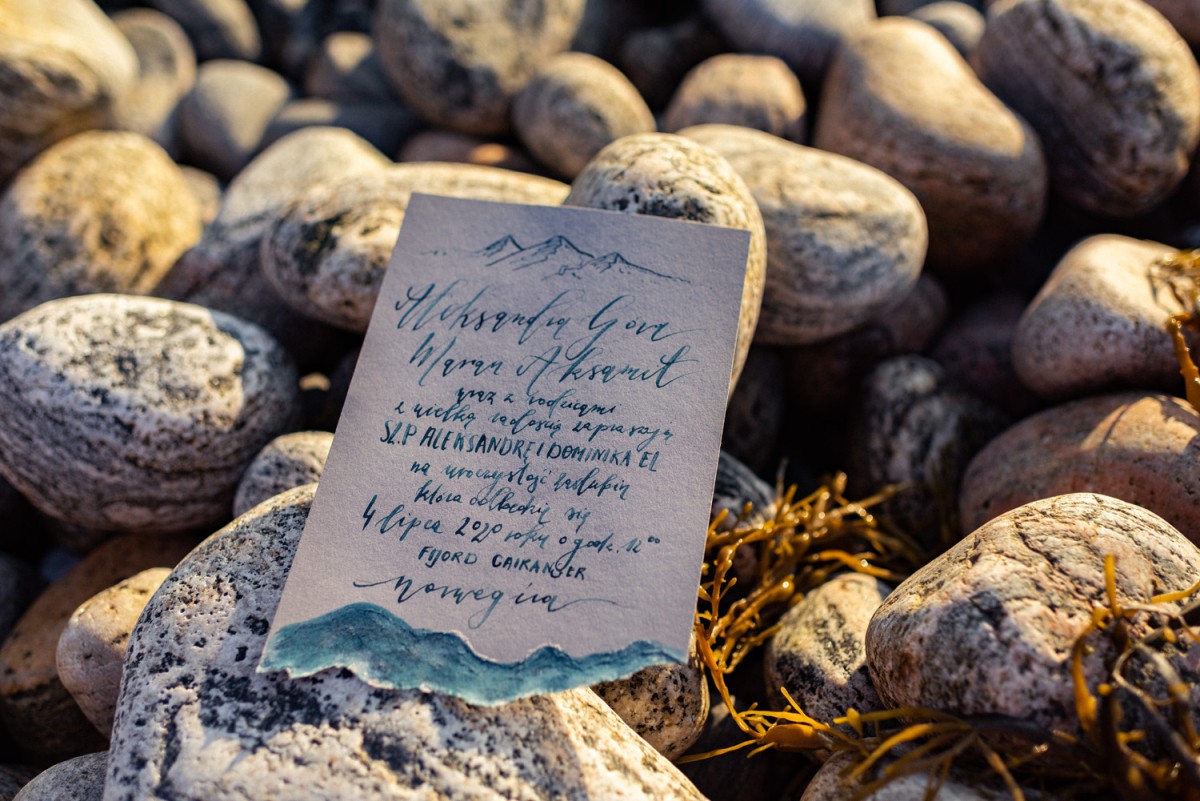 Aleksandra Góra
Aksamit
wraz z rodzicami
z wielką radością zapraszają
SZ.P ALEKSANDRĘ I DOMINIKA EL
na uroczystość zaślubin
która odbędzie się
4 lipca 2020 roku o godz. 12⁰⁰
FIJORD
Norwegia